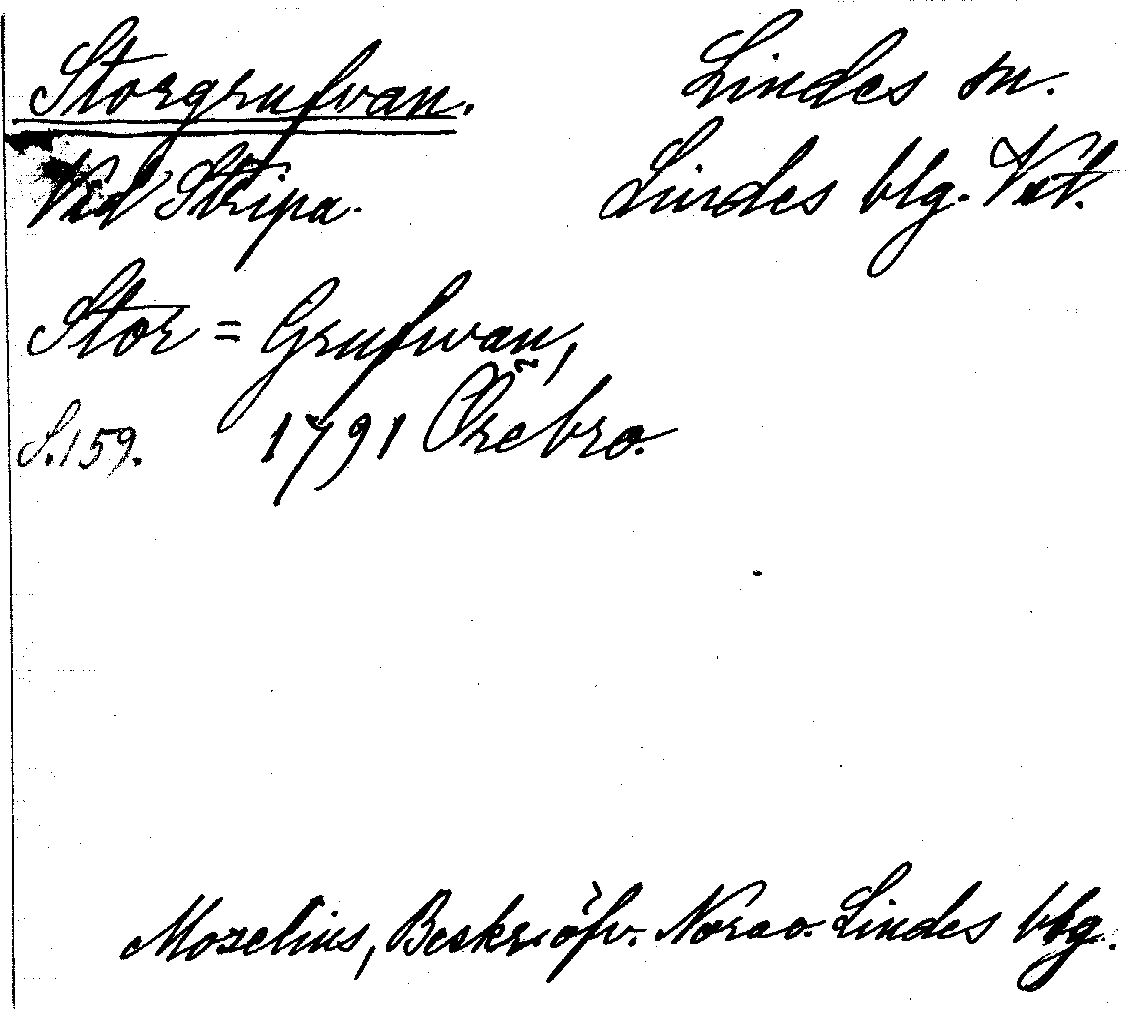 Storgrufvan. Lindes sn.
Vid Stripa. Lindes blg. Vstl.
Stor = Grufwan,
S. 159. 1791 Örebro.
Mozelius, Beskr. öfv. Nora o. Lindes blg.